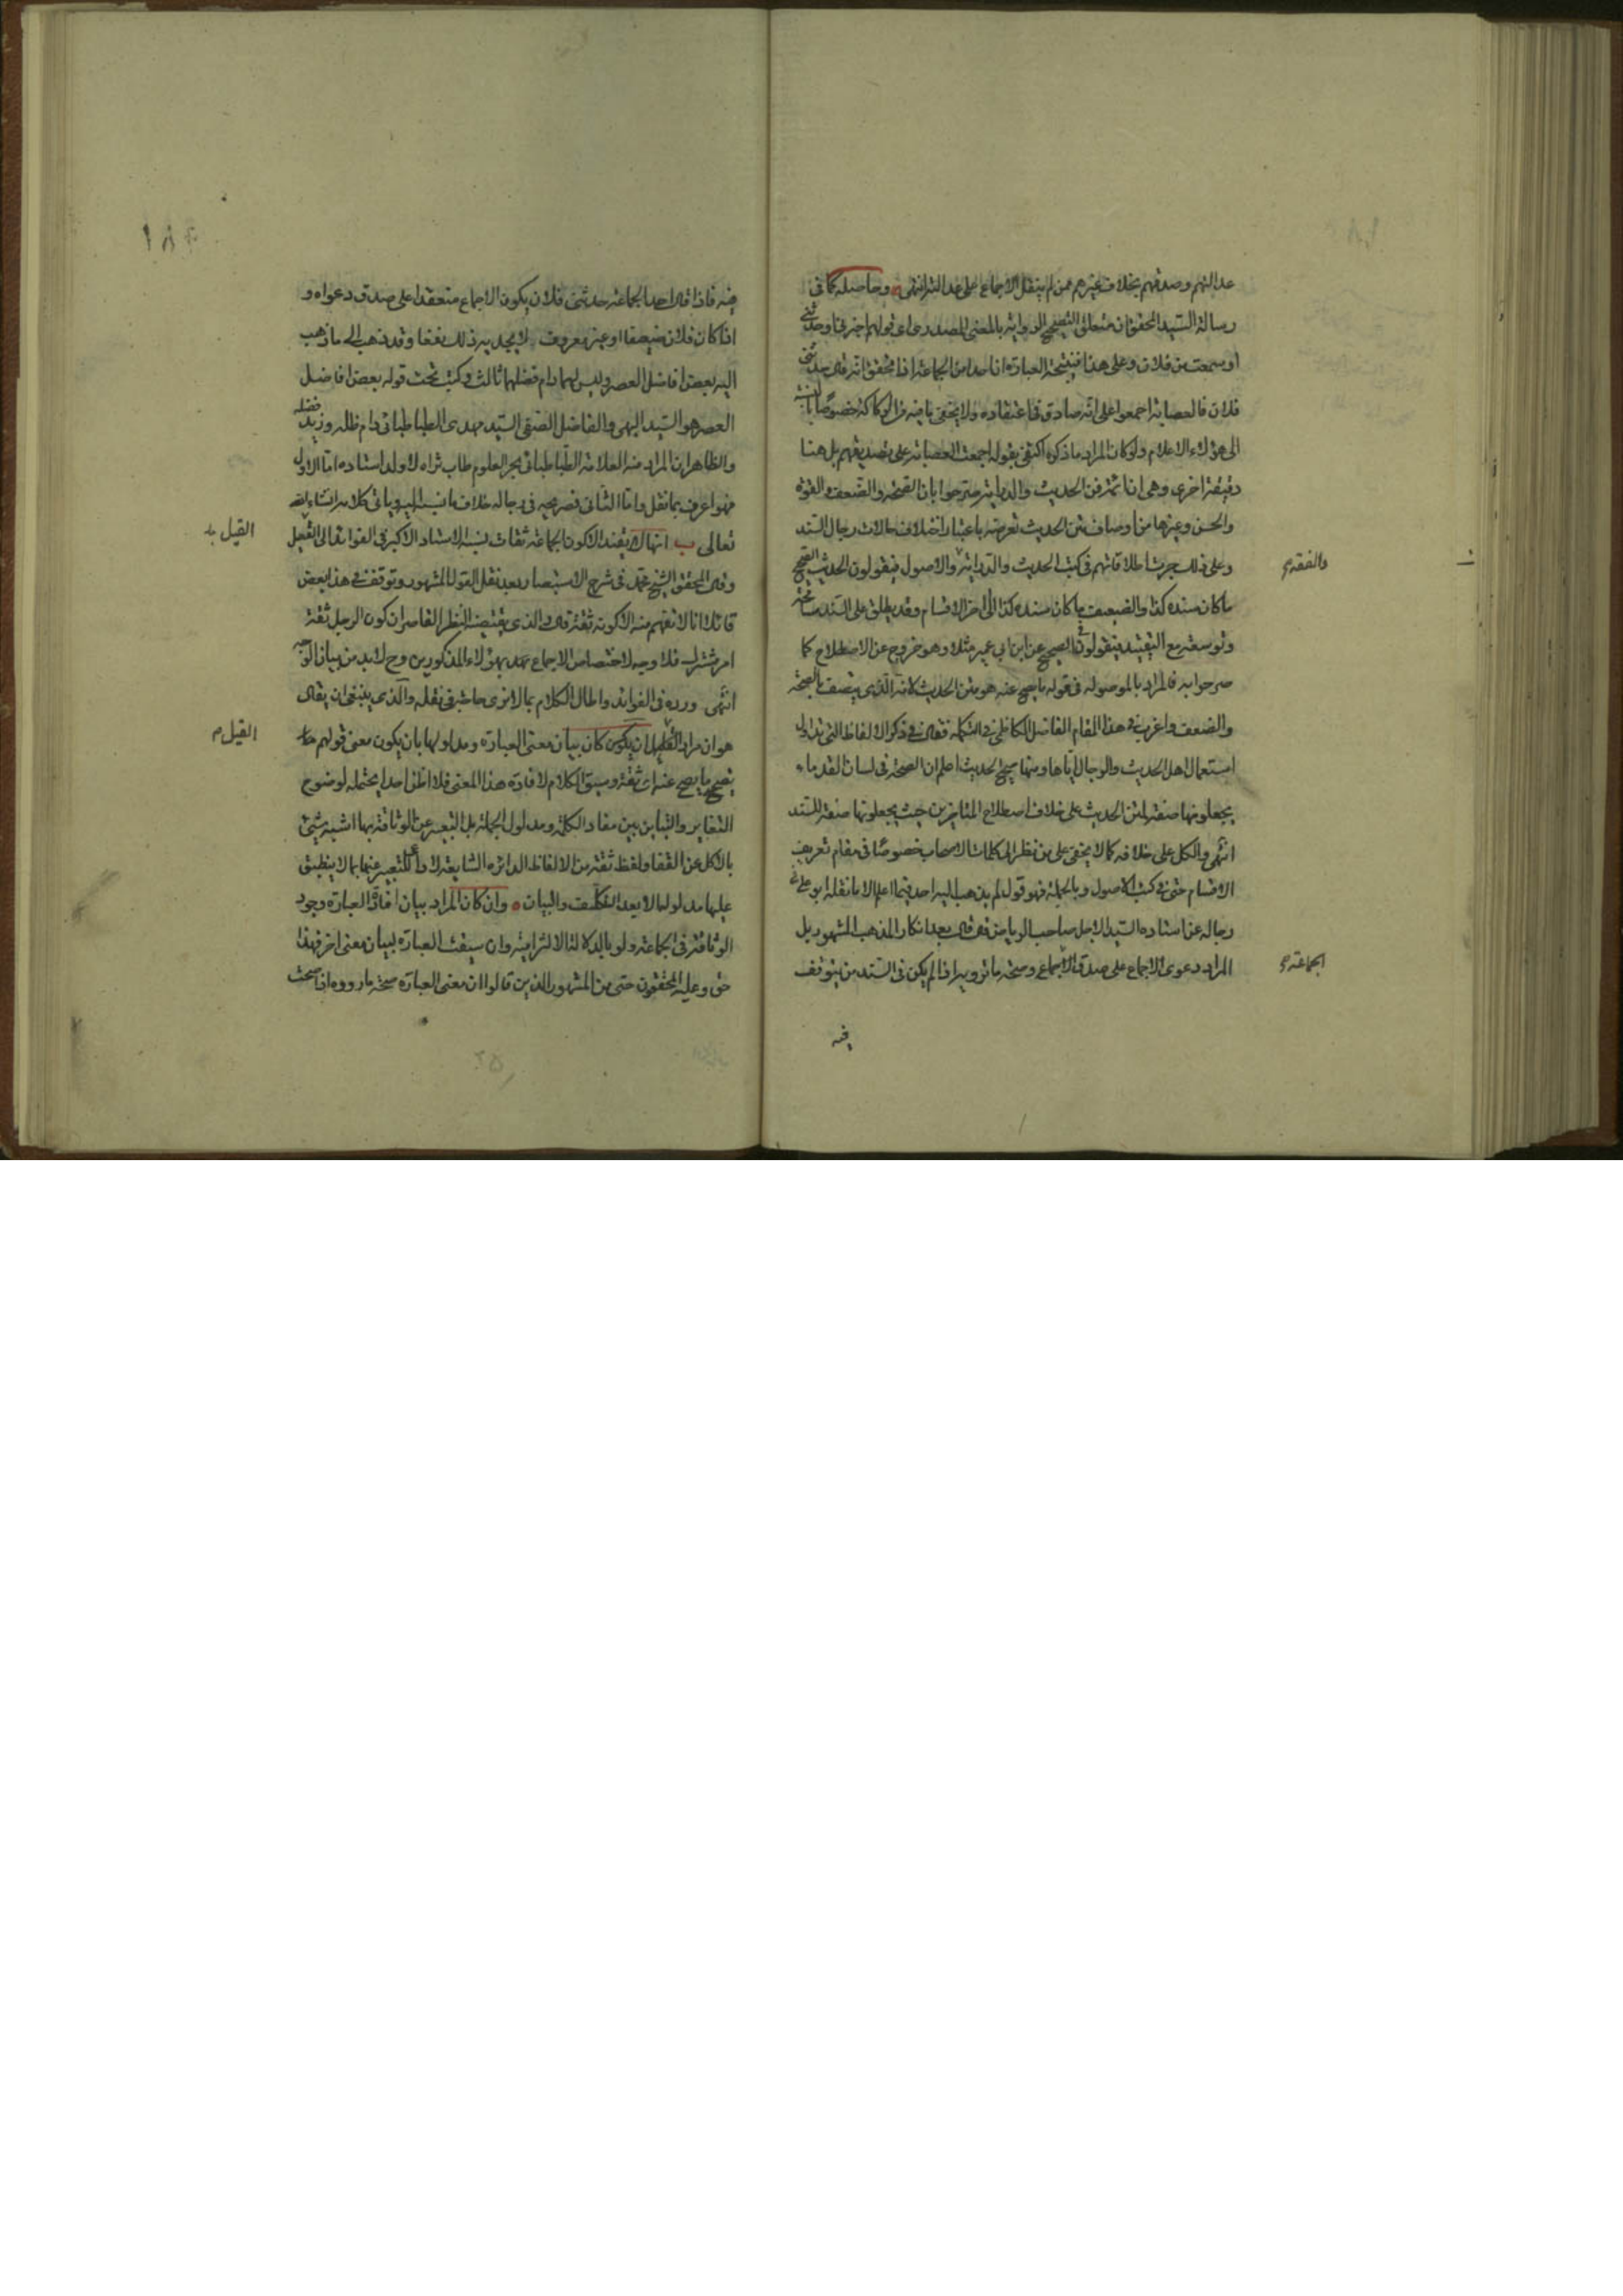 عدالتهم وصدقهم بخلاف غيرهم ممن لم ينقل الاجماع على عدالته انتهى وحاصله كما في
رسالة السيد المحقق ان متعلق التصحيح الرواية بالمعنى المصدري اي قولهم اخبرني او حدثني
او سمعت من فلان وعلى هذا فنتيجة العبارة ان احدا من الجماعة اذا تحقق انه قال حدثني
فلان فالعصابة اجمعوا على انه صادق في اعتقاده ولا يخفى ما فيه من الركاكة خصوصا بالنسبة
الى هؤلاء الاعلام ولو كان المراد ما ذكره اكتفى بقوله اجمعت العصابة على تصديقهم بل هنا
دقيقة اخرى وهي ان ائمة فن الحديث والدراية صرحوا بان الصحة والضعف والقوة
والحسن وغيرها من اوصاف متن الحديث تعرضه باعتبار اختلاف حالات رجال السند
وعلى ذلك جرت اطلاقاتهم في كتب الحديث والدراية والاصول فيقولون الحديث الصحيح
والفقه
ما كان سنده كذا والضعيف ما كان سنده كذا الى اخر الاقسام وقد يطلق على السند مسامحة
وتوسعة مع التقييد فيقولون في الصحيح عن ابن ابي عمير مثلا وهو خروج عن الاصطلاح كما
صرحوا به فالمراد بالموصولة في قوله ما يصح عنه هو متن الحديث لانه الذي يتصف بالصحة
والضعف واغرب في هذا المقام الفاضل الكاظمي في التكملة فقال في ذكر الالفاظ التي تداول
استعمال اهل الحديث والرجال اياها ومنها صحيح الحديث اعلم ان الصحة في لسان القدماء
يجعلونها صفة لمتن الحديث على خلاف اصطلاح المتاخرين حيث يجعلونها صفة للسند
انتهى والكل على خلافه كما لا يخفى على من نظر الى كلمات الاصحاب خصوصا في مقام تعريف
الاقسام حتى في كتب الاصول وبالجملة فهو قول لم يذهب اليه احد فيما اعلم الا ما نقله ابو علي في
رجاله عن استاده السيد الاجل صاحب الرياض فقد قال بعد انكار المذهب المشهور بل
المراد دعوى الاجماع على صدق الجماعة وصحة ما ترويه اذا لم يكن في السند من يتوقف
الجماعة
فيه
١٨٢
فيه فاذا قال احد الجماعة حدثني فلان يكون الاجماع منعقدا على صدق دعواه و
اذا كان فلان ضعيفا او غير معروف لا يجديه ذلك نفعا وقد ذهب الى ما ذهب
اليه بعض افاضل العصر وليس لهما دام فضلهما ثالث وكتب تحت قوله بعض افاضل
العصر هو السيد البهي والفاضل الصفي السيد مهدي الطباطبائي دام ظله وزيد فضله
والظاهر ان المراد منه العلامة الطباطبائي بحر العلوم طاب ثراه لا ولد استاده اما الاول
فهو اعرف بما نقل واما الثاني فصريحه في رجاله خلاف ما نسبه اليه وياتي كلامه انشاء الله
تعالى ب انها لا تفيد الا كون الجماعة ثقات نسبه الاستاد الاكبر في الفوائد الى القيل
القيل
وقال المحقق الشيخ محمد في شرح الاستبصار بعد نقل القول المشهور وتوقف في هذا بعض
قائلا انا لا نفهم منه الا كونه ثقة قال والذي يقتضيه النظر القاصر ان كون الرجل ثقة
امر مشترك فلا وجه لاختصاص الاجماع بهؤلاء المذكورين وح لا بد من بيان الوجه
انتهى ورده في الفوائد واطال الكلام بما لا نرى حاجة في نقله والذي ينبغي ان يقال
هو ان مراد القيل ان يكون كان بيان معنى العبارة ومدلولها بان يكون معنى قولهم
القيل
تصحيح ما يصح عنه اي ثقة وسبق الكلام لافادة هذا المعنى فلا اظن احدا يحتمله لوضوح
التغاير والتباين بين مفاد الكلمة ومدلول الجملة بل التعبير عن الوثاقة بها اشبه شيء
بالاكل عن القفا ولفظ ثقة من الالفاظ الدائرة الشايعة لا داعي للتعبير عنها بما لا ينطبق
عليها مدلولها الا بعد التكلف والبيان وان كان المراد بيان افادة العبارة وجود
الوثاقة في الجماعة ولو بالدلالة الالتزامية وان سيقت العبارة لبيان معنى اخر فهذا
حق وعليه المحققون حتى من المشهور الذين قالوا ان معنى العبارة صحة ما رووه اذا صحت